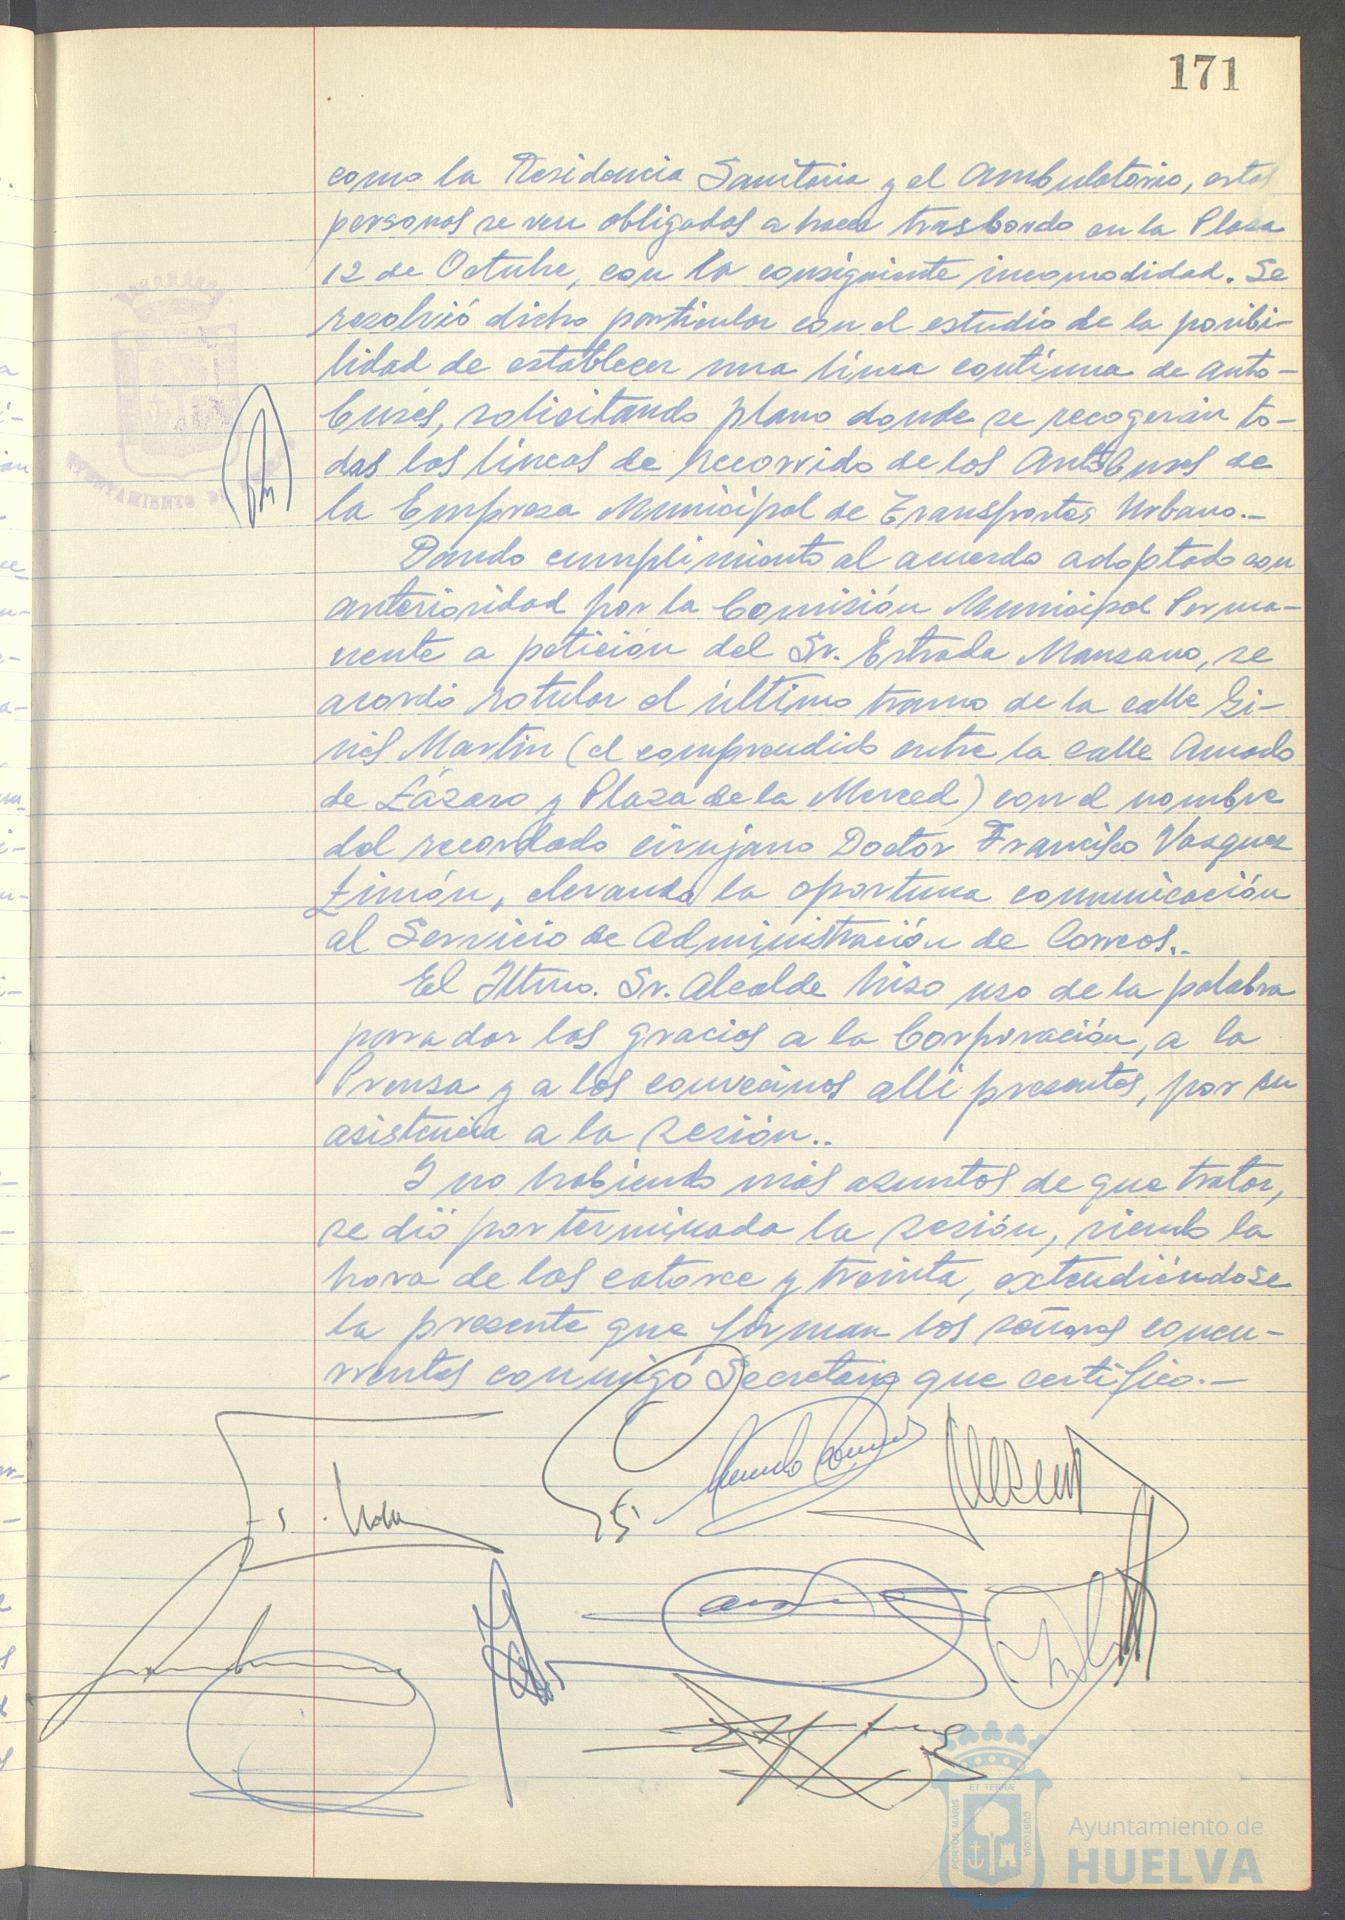 171
como la Residencia Sanitaria y el Ambulatorio, estas
personas se ven obligadas a hacer trasbordo en la Plaza
12 de Octubre, con la consiguiente incomodidad. Se
resolvió dicho particular con el estudio de la posibi-
lidad de establecer una línea contínua de auto-
buses, solicitando plano donde se recogerán to-
das las líneas de recorrido de los Autobuses de
la Empresa Municipal de Transportes Urbano.-
Dando cumplimiento al acuerdo adoptado con
anterioridad por la Comisión Municipal Perma-
nente a petición del Sr. Estrada Manzano, se
acordó rotular el último tramo de la calle Gi-
nés Martín (el comprendido entre la calle Amado
de Lázaro y Plaza de la Merced) con el nombre
del recordado cirujano Doctor Francisco Vazquez
Limón, elevando la oportuna comunicación
al Servicio de Administración de Correos..
El Iltmo. Sr. Alcalde hizo uso de la palabra
para dar las gracias a la Corporación, a la
Prensa y a los convecinos allí presentes, por su
asistencia a la sesión..
Y no habiendo más asuntos de que tratar,
se dió por terminada la sesión, siendo la
hora de las catorce y treinta, extendiéndose
la presente que firman los señores concu-
rrentes conmigo Secretario que certifico.-
AYUNTAMIENTO DE
PORTUS MARIS ET TERRÆ CUSTODIA
Ayuntamiento de
HUELVA